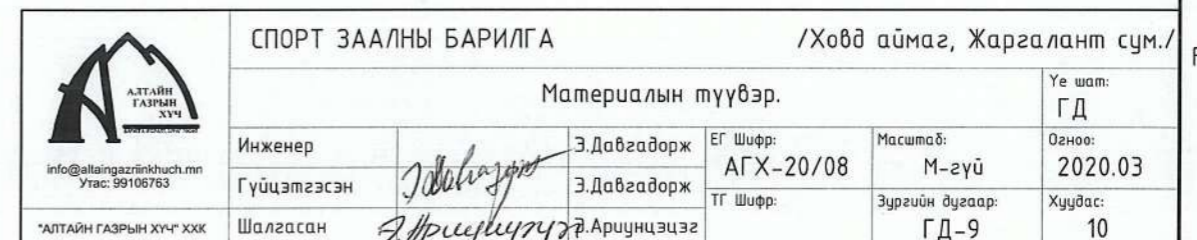 АЛТАЙН
ГАЗРЫН
ХҮЧ
info@altaingazriinkhuch.mn
Утас: 99106763
"АЛТАЙН ГАЗРЫН ХҮЧ" ХХК
СПОРТ ЗААЛНЫ БАРИЛГА /Ховд аймаг, Жаргалант сум./
Материалын түүвэр.
Үе шат:
ГД
Инженер Э.Давгадорж
Гүйцэтгэсэн Э.Давгадорж
Шалгасан Э.Ариунцэцэг
ЕГ Шифр:
АГХ-20/08
ТГ Шифр:
Масштаб:
М-гүй
Зургийн дугаар:
ГД-9
Огноо:
2020.03
Хуудас:
10